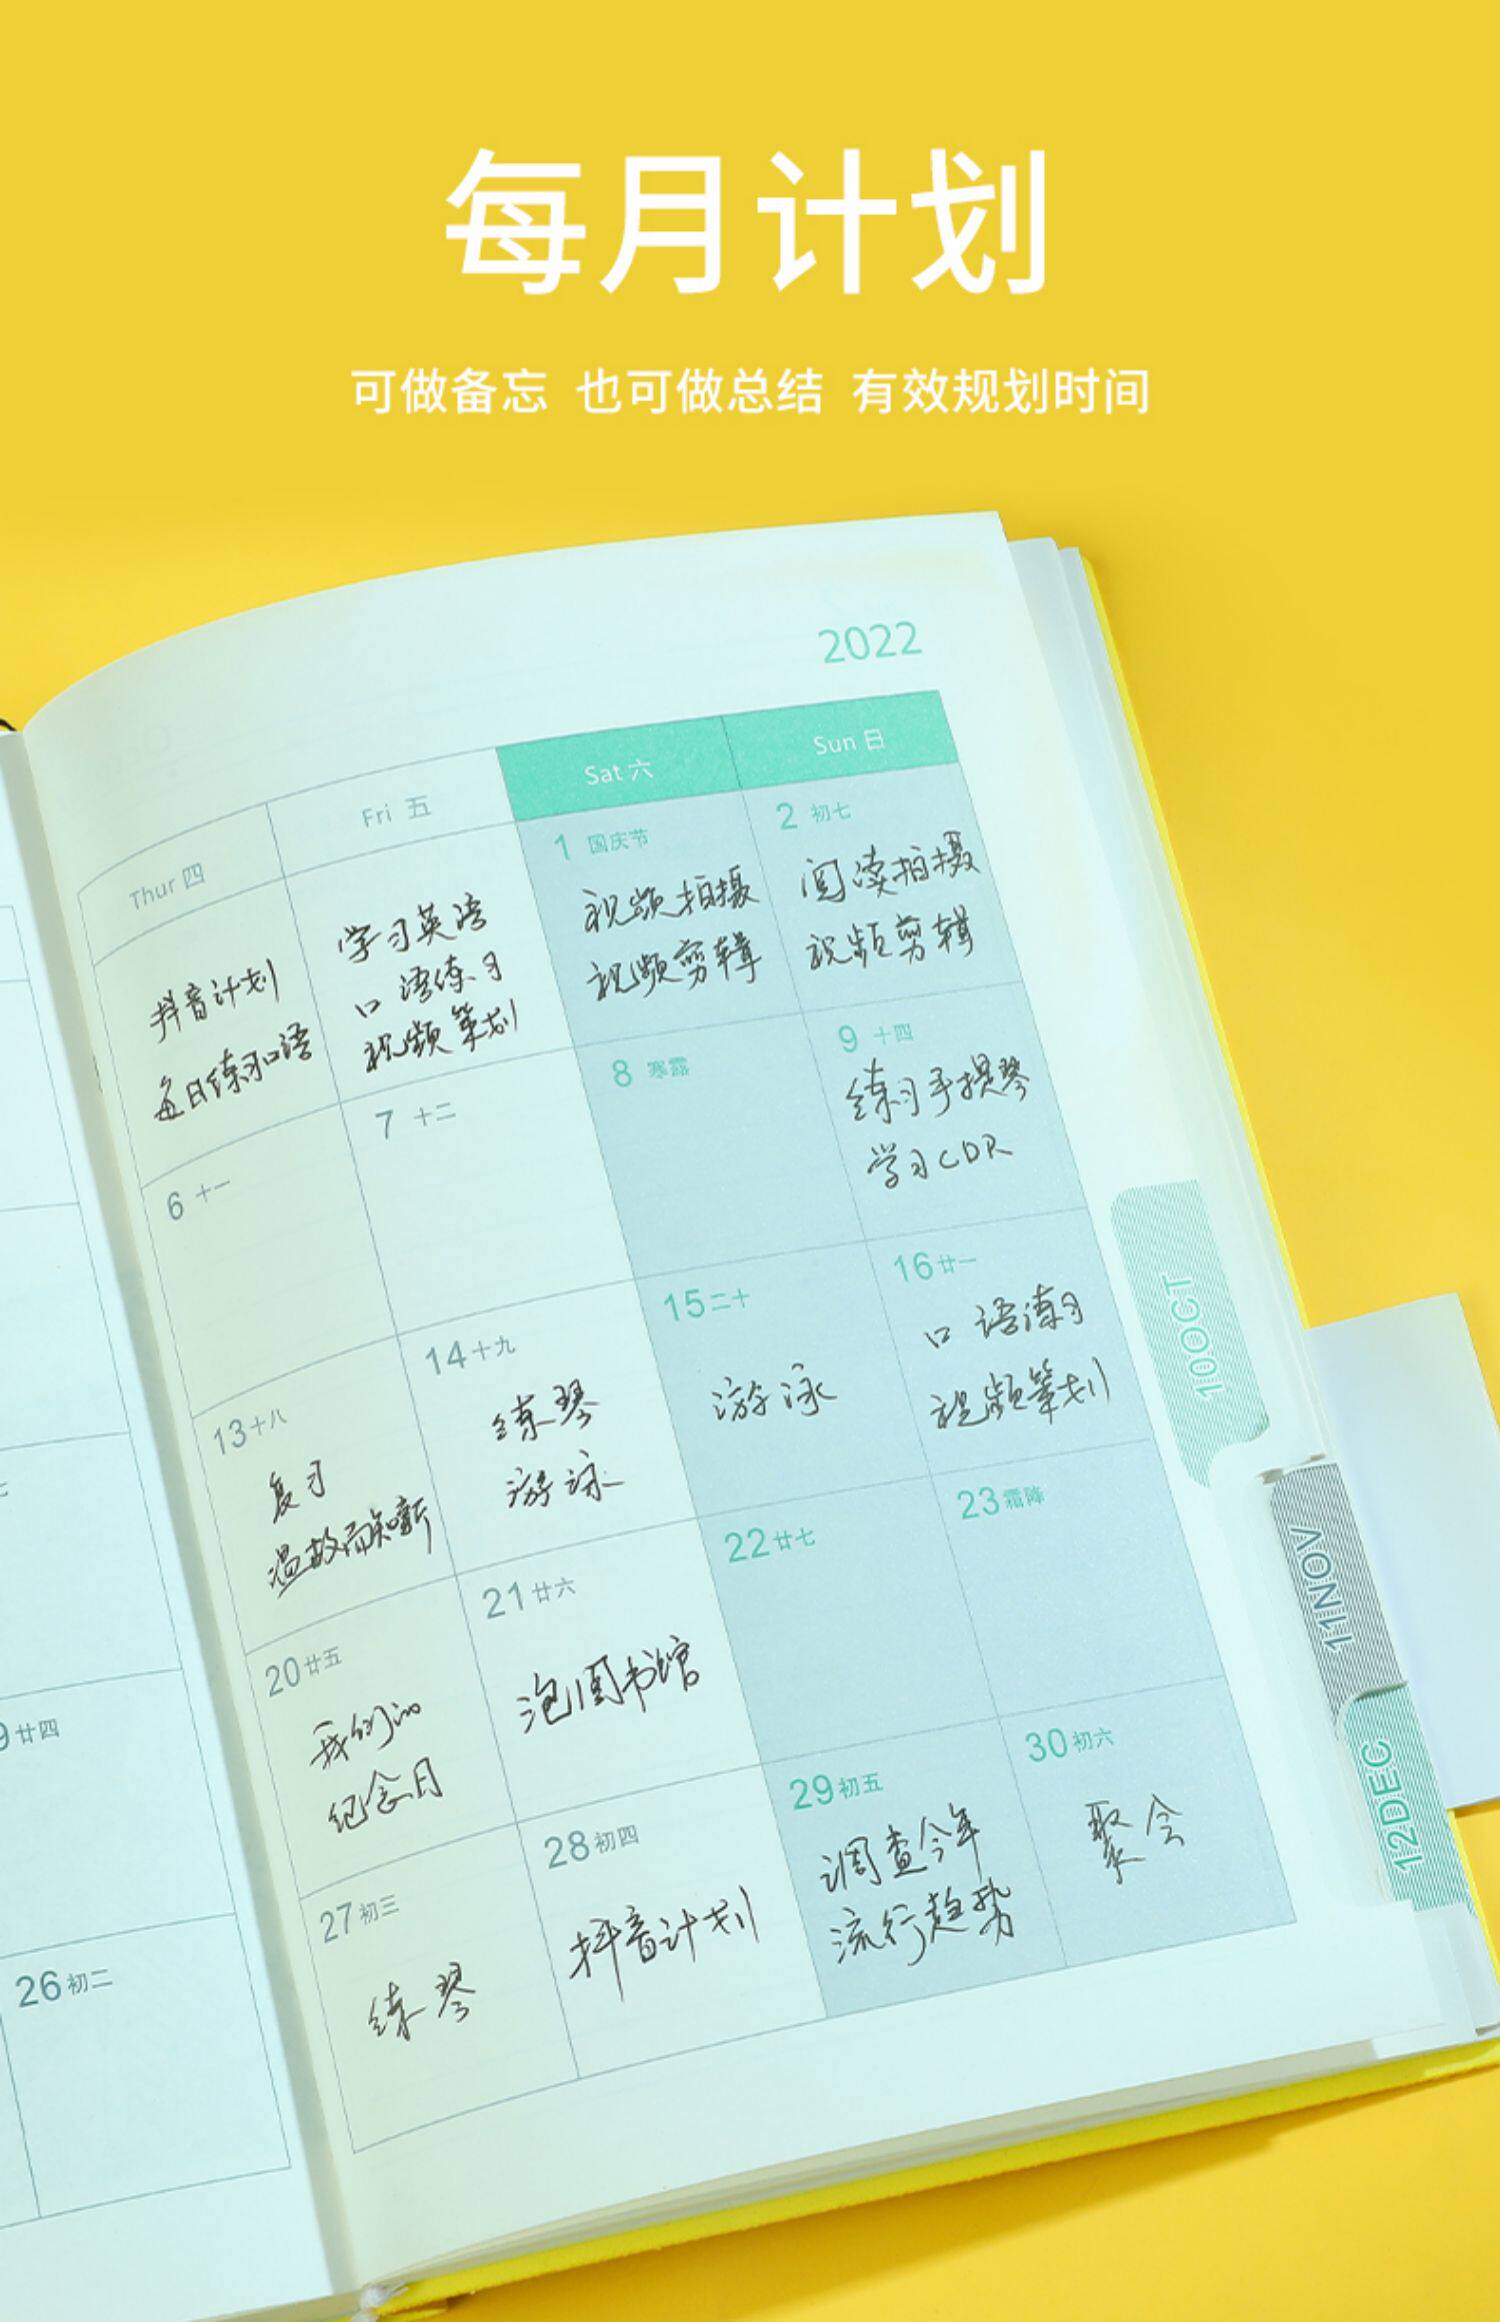 每月计划
可做备忘 也可做总结 有效规划时间
2022
Thur 四
Fri 五
Sat 六
Sun 日
抖音计划
每日练习口语
学习英语
口语练习
视频策划
1 国庆节
视频拍摄
视频剪辑
2 初七
阅读拍摄
视频剪辑
6 十一
7 十二
8 寒露
9 十四
练习手提琴
学习CDR
13 十八
复习
温故而知新
14 十九
练琴
游泳
15 二十
游泳
16 廿一
口语练习
视频策划
9 廿四
20 廿五
我们的
纪念日
21 廿六
泡图书馆
22 廿七
23 霜降
26 初二
27 初三
练琴
28 初四
抖音计划
29 初五
调查今年
流行趋势
30 初六
聚会
10OCT
11NOV
12DEC